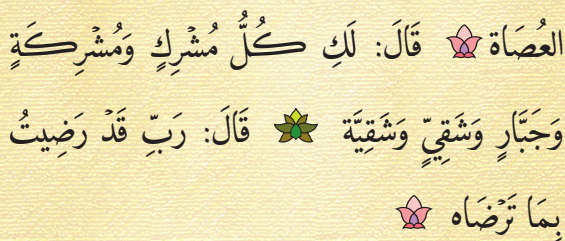 العُصَاة قَالَ: لَكِ كُلُّ مُشْرِكٍ وَمُشْرِكَةٍ
وَجَبَّارٍ وَشَقِيٍّ وَشَقِيَّة قَالَ: رَبِّ قَدْ رَضِيتُ
بِمَا تَرْضَاه